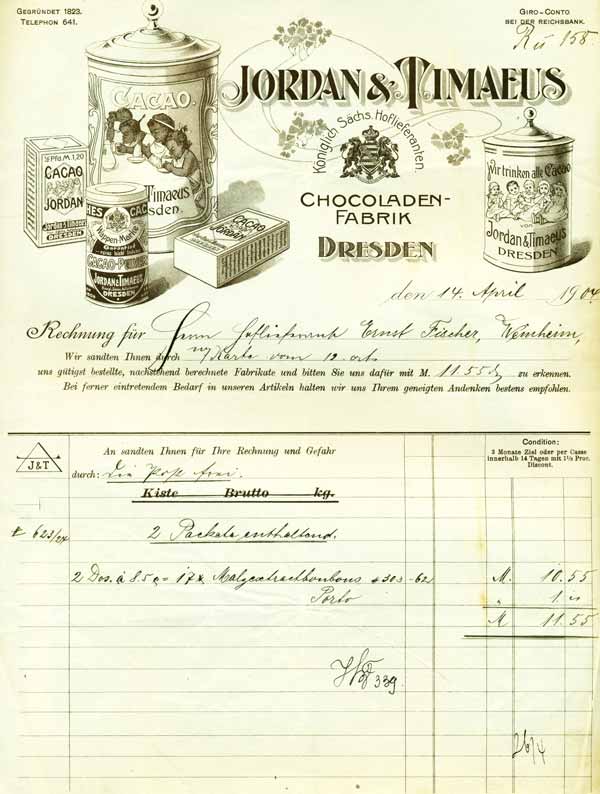 GEGRÜNDET 1823.
TELEPHON 641.
GIRO-CONTO
BEI DER REICHSBANK.
158.
JORDAN & TIMAEUS
Königlich Sächs. Hoflieferanten.
CHOCOLADEN-
FABRIK
DRESDEN
CACAO.
Timaeus
½ Pfd. M. 1,20
CACAO
JORDAN
Jordan & Timaeus
DRESDEN
CACAO-PULVER
JORDAN & TIMAEUS
DRESDEN
CACAO
Wir trinken alle Cacao
von
Jordan & Timaeus
DRESDEN
den 14. April 1904
Rechnung für Herrn Hoflieferant Ernst Fischer, Weinheim,
Wir sandten Ihnen durch Karte vom 12. crt.
uns gütigst bestellte, nachstehend berechnete Fabrikate und bitten Sie uns dafür mit M. 11.55 zu erkennen.
Bei ferner eintretendem Bedarf in unseren Artikeln halten wir uns Ihrem geneigten Andenken bestens empfohlen.
J&T
An sandten Ihnen für Ihre Rechnung und Gefahr
durch: die Post frei.
Kiste Brutto kg.
Condition:
3 Monate Ziel oder per Casse
innerhalb 14 Tagen mit 1½ Proc.
Discont.
623/24
2 Packete enthaltend.
2 Dos. à 8.5 = 17 Malzextractbonbons -62 M. 10.55
Porto " 1.
M 11.55
339
26/4